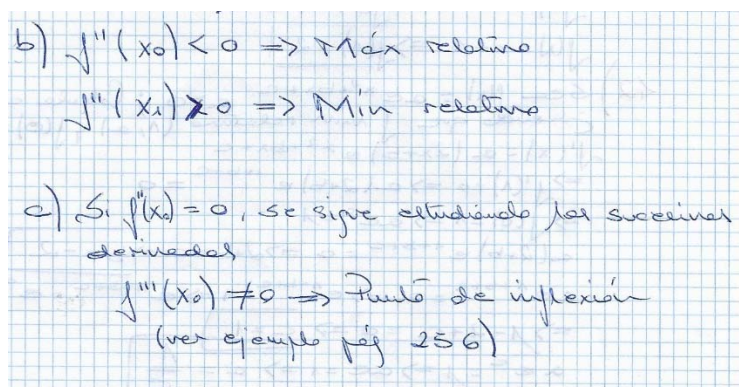 b) f''(x₀) < 0 => Máx relativo
f''(x₁) > 0 => Mín relativo
c) Si f''(x₀) = 0, se sigue estudiando las sucesivas
derivadas
f'''(x₀) ≠ 0 => Punto de inflexión
(ver ejemplo pág 256)